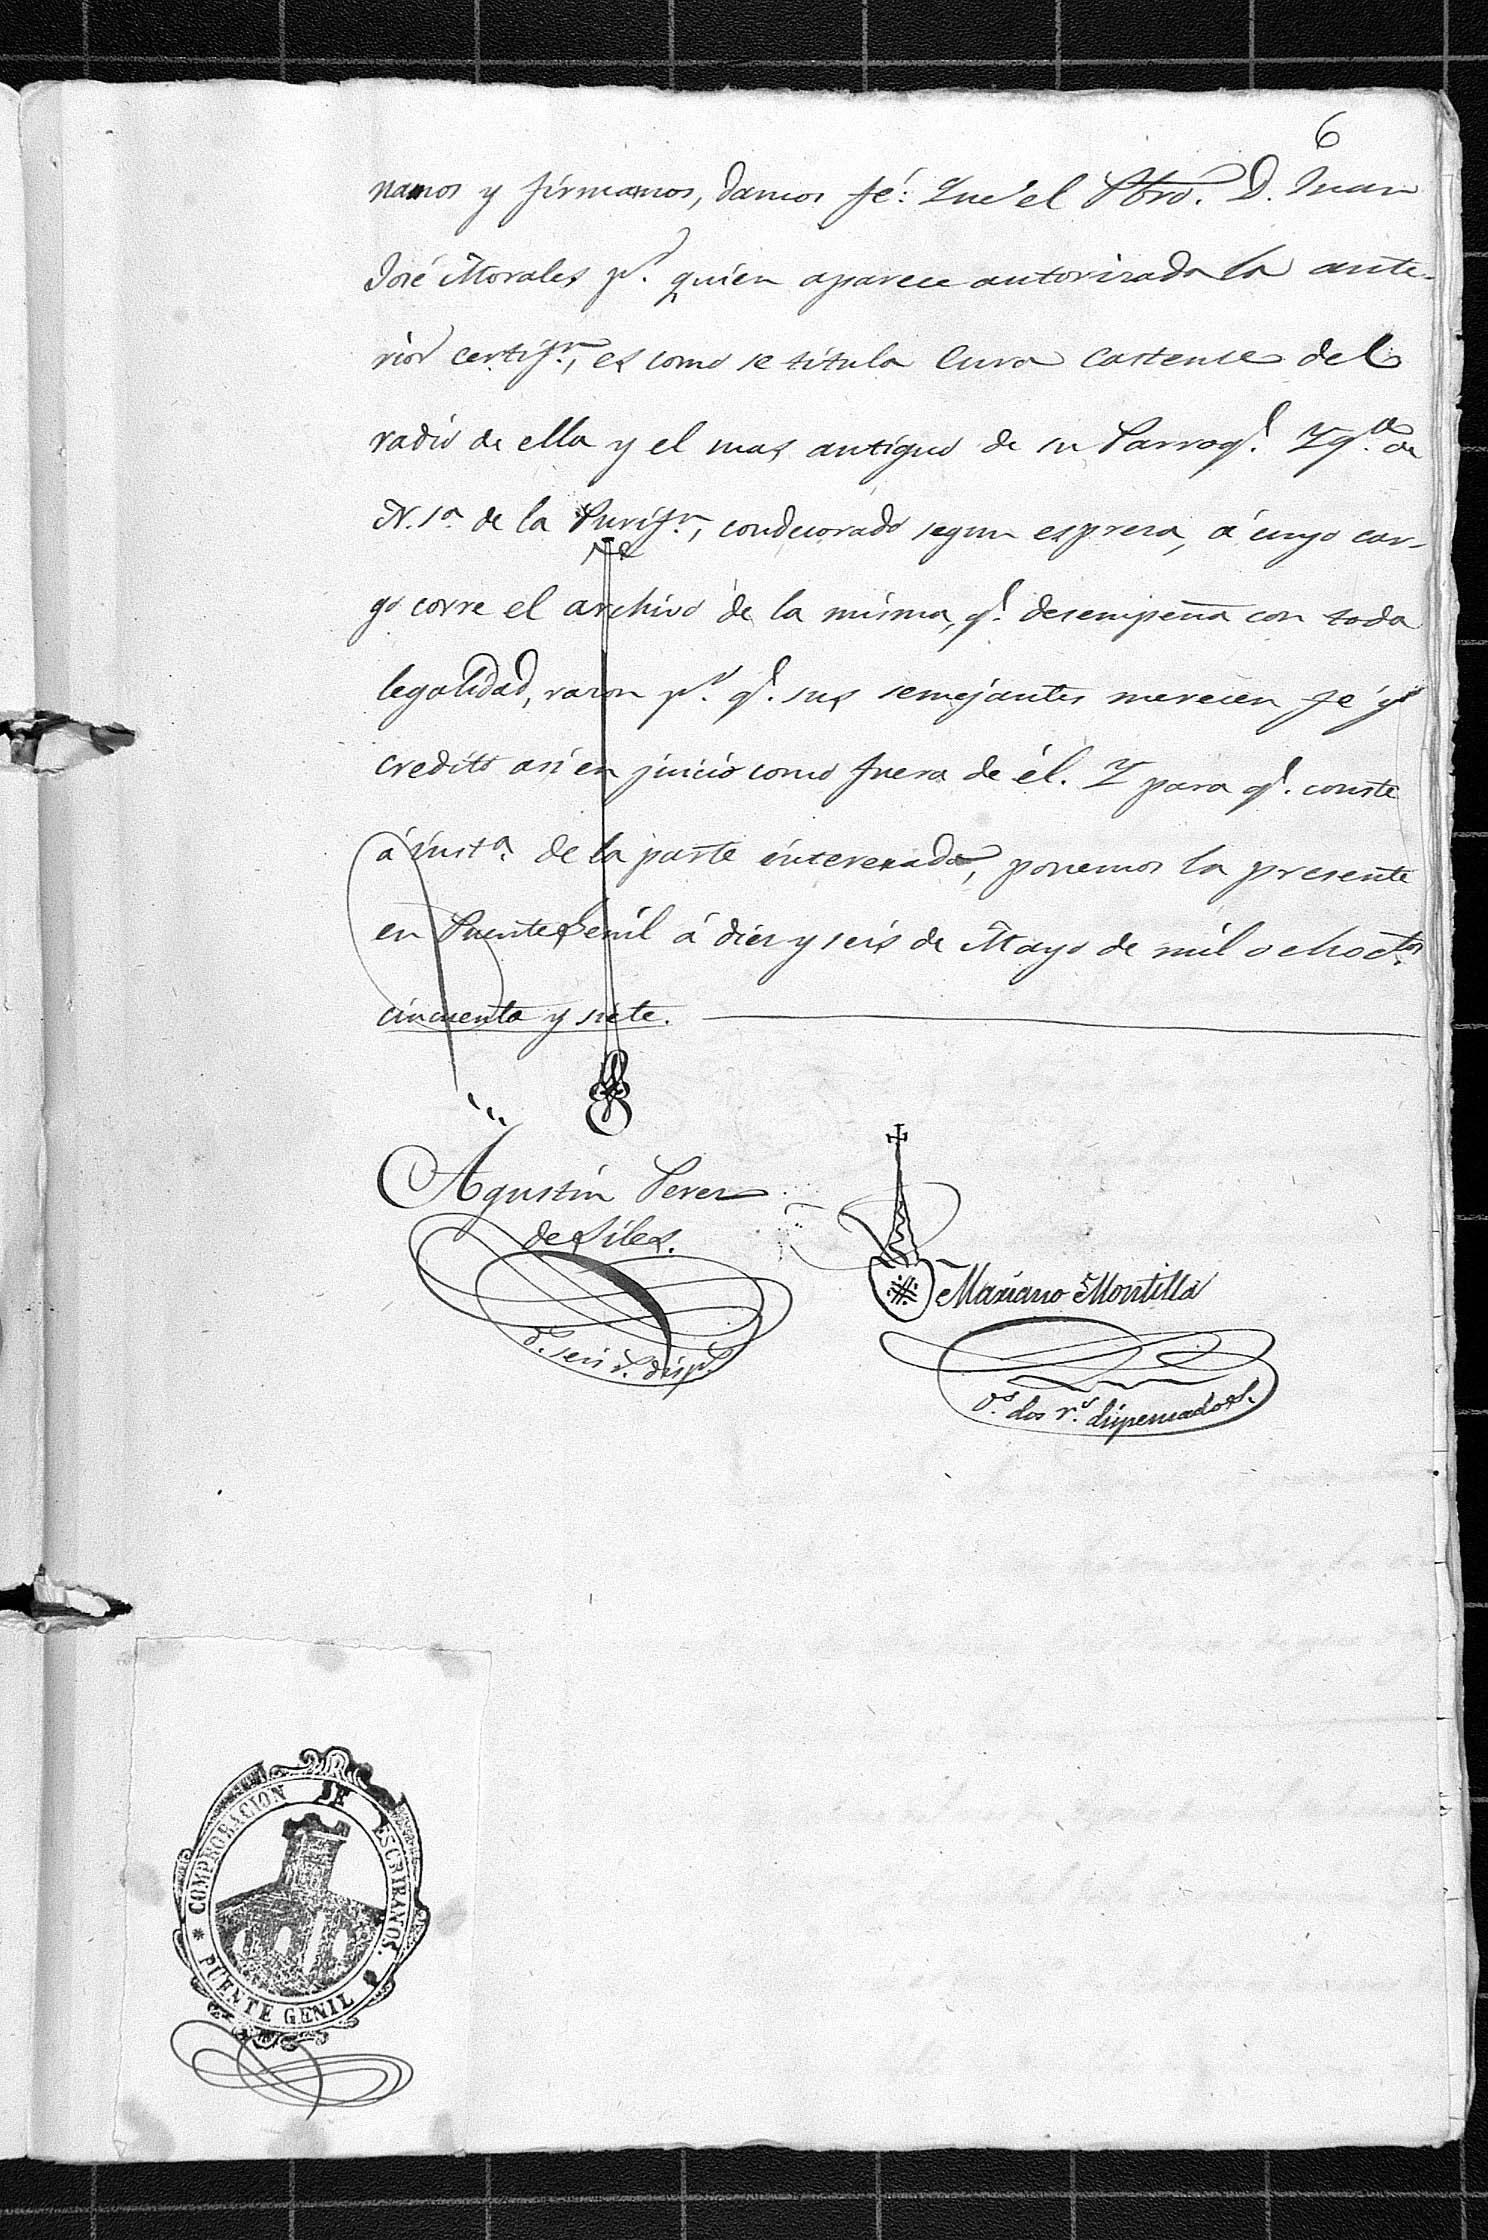 6
namos y firmamos, damos fé: Que el Pbro. D. Juan
José Morales pr. quien aparece autorizada la ante-
rior certifn., es como se titula Cura Castense del
radio de ella y el mas antiguo de su Parroql. Ygª. de
N. Sª. de la Purifn., condecorado segun espresa, á cuyo car-
go corre el archivo de la misma, ql. desempeña con toda
legalidad, razon pr. ql. sus semejantes merecen fé y
credito asi en juicio como fuera de él. Y para ql. conste
á instª. de la parte interesada, ponemos la presente
en Puente Genil á diez y seis de Mayo de mil ochoctos.
cincuenta y siete.
Agustin Perez
de Siles.
Mariano Montilla
ds. seis rs. disps.
ds. dos rs. dispensados.
COMPROBACION DE ESCRIBANOS.
* PUENTE GENIL